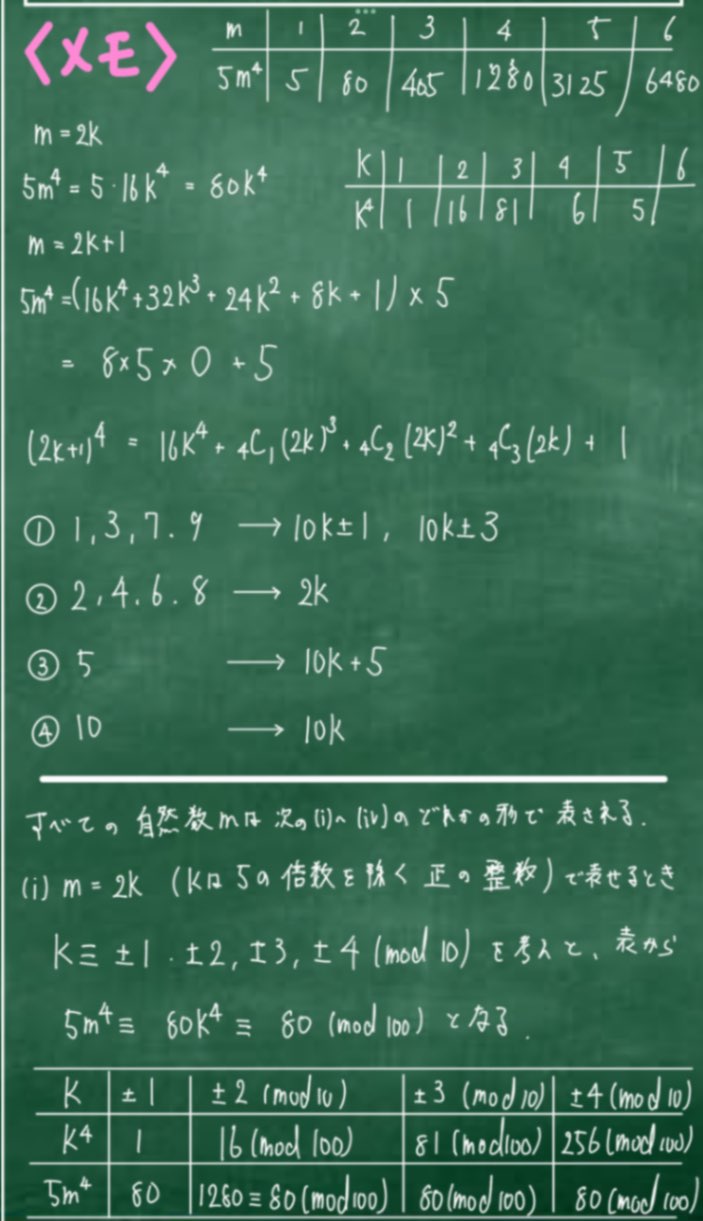 〈メモ〉
m 1 2 3 4 5 6
5m⁴ 5 80 405 1280 3125 6480
m = 2k
5m⁴ = 5・16k⁴ = 80k⁴
k 1 2 3 4 5 6
k⁴ 1 16 81 6 5
m = 2k+1
5m⁴ = (16k⁴+32k³+24k²+8k+1) × 5
= 8×5×0+5
(2k+1)⁴ = 16k⁴+₄C₁(2k)³+₄C₂(2k)²+₄C₃(2k)+1
① 1,3,7.9 → 10k±1, 10k±3
② 2,4.6.8 → 2k
③ 5 → 10k+5
④ 10 → 10k
すべての自然数mは次の(i)~(iv)のどれかの形で表される.
(i) m = 2k (kは5の倍数を除く正の整数)で表せるとき
k≡ ±1.±2,±3,±4 (mod 10) を考えて、表から
5m⁴≡ 80k⁴≡ 80 (mod 100) となる.
k ±1 ±2 (mod 10) ±3 (mod 10) ±4 (mod 10)
k⁴ 1 16 (mod 100) 81 (mod 100) 256 (mod 100)
5m⁴ 80 1280≡80 (mod 100) 80 (mod 100) 80 (mod 100)